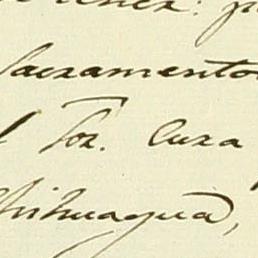 Sacramento
l Sor. Cura
Chihuagua,